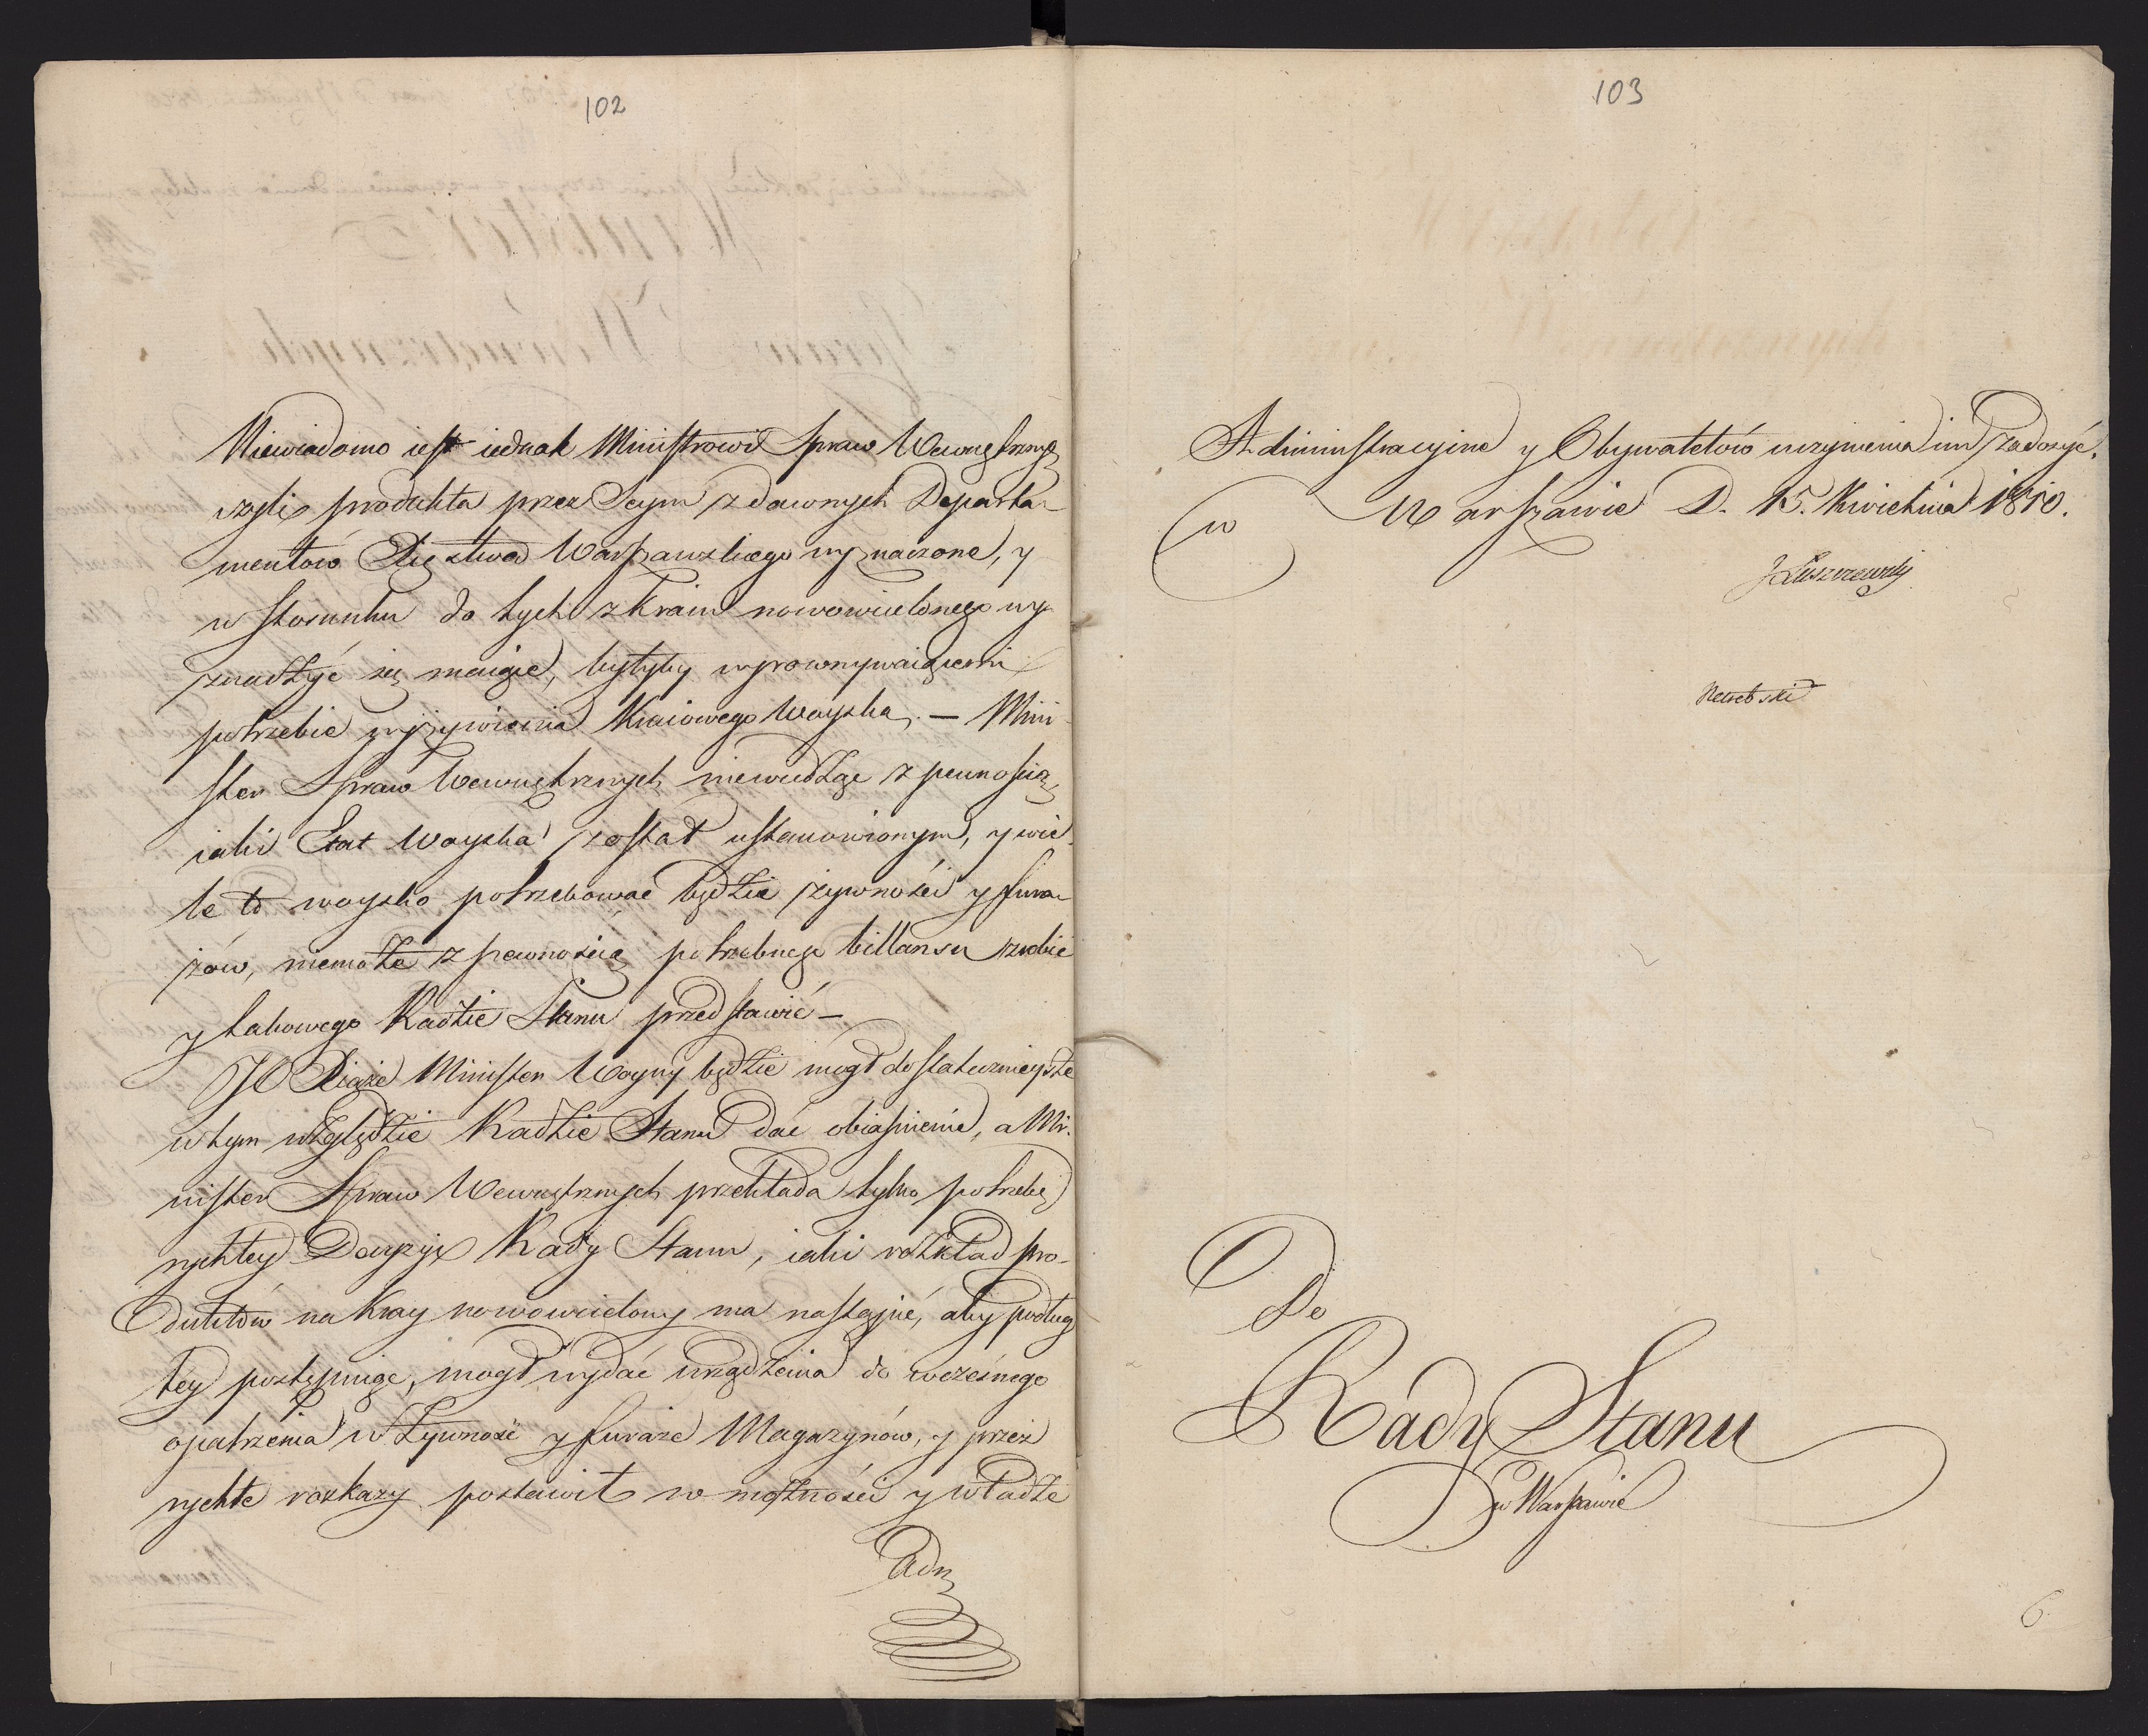 102
Niewiadomo iest iednak Ministrowi Spraw Wewnętrznych
czyli produkta przez Seym z dawnych Departa-
mentów Xięstwa Warszawskiego wyznaczone, y
w stosunku do tych z Kraiu nowowcielonego wy
znadzyć się maiące, byłyby wyrownywaiącemi
potrzebie wyżywienia Kraiowego Woyska. — Mini-
ster Spraw Wewnętrznych niewiedząc z pewnością
iaki Etat Woyska został ustanowionym, y wie-
le to woysko potrzebować będzie żywności y fura-
żów, niemoże z pewnością potrzebnego billansu zrobić
y takowego Radzie Stanu przedstawić —
JO Xiąże Minister Woyny będzie mógł dostateczniejsze
w tym względzie Radzie Stanu dać obiaśnienie, a Mi-
nister Spraw Wewnętrznych przekłada tylko potrzebę
rychłey Decyzyi Rady Stanu, iaki rozkład pro-
duktów na Kray nowowcielony ma nastąpić, aby podług
tey postępuiąc, mógł wydać urządzenia do wczesnego
opatrzenia w Żywność y furaże Magazynów, y przez
rychłe rozkazy postawił w możności y władze
Adm
103
Administracyine y Obywatelów uczynienia im zadosyć.
w Warszawie D. 15. Kwietnia 1810.
J Łuszczewski
Do
Rady Stanu
w Warszawie
6